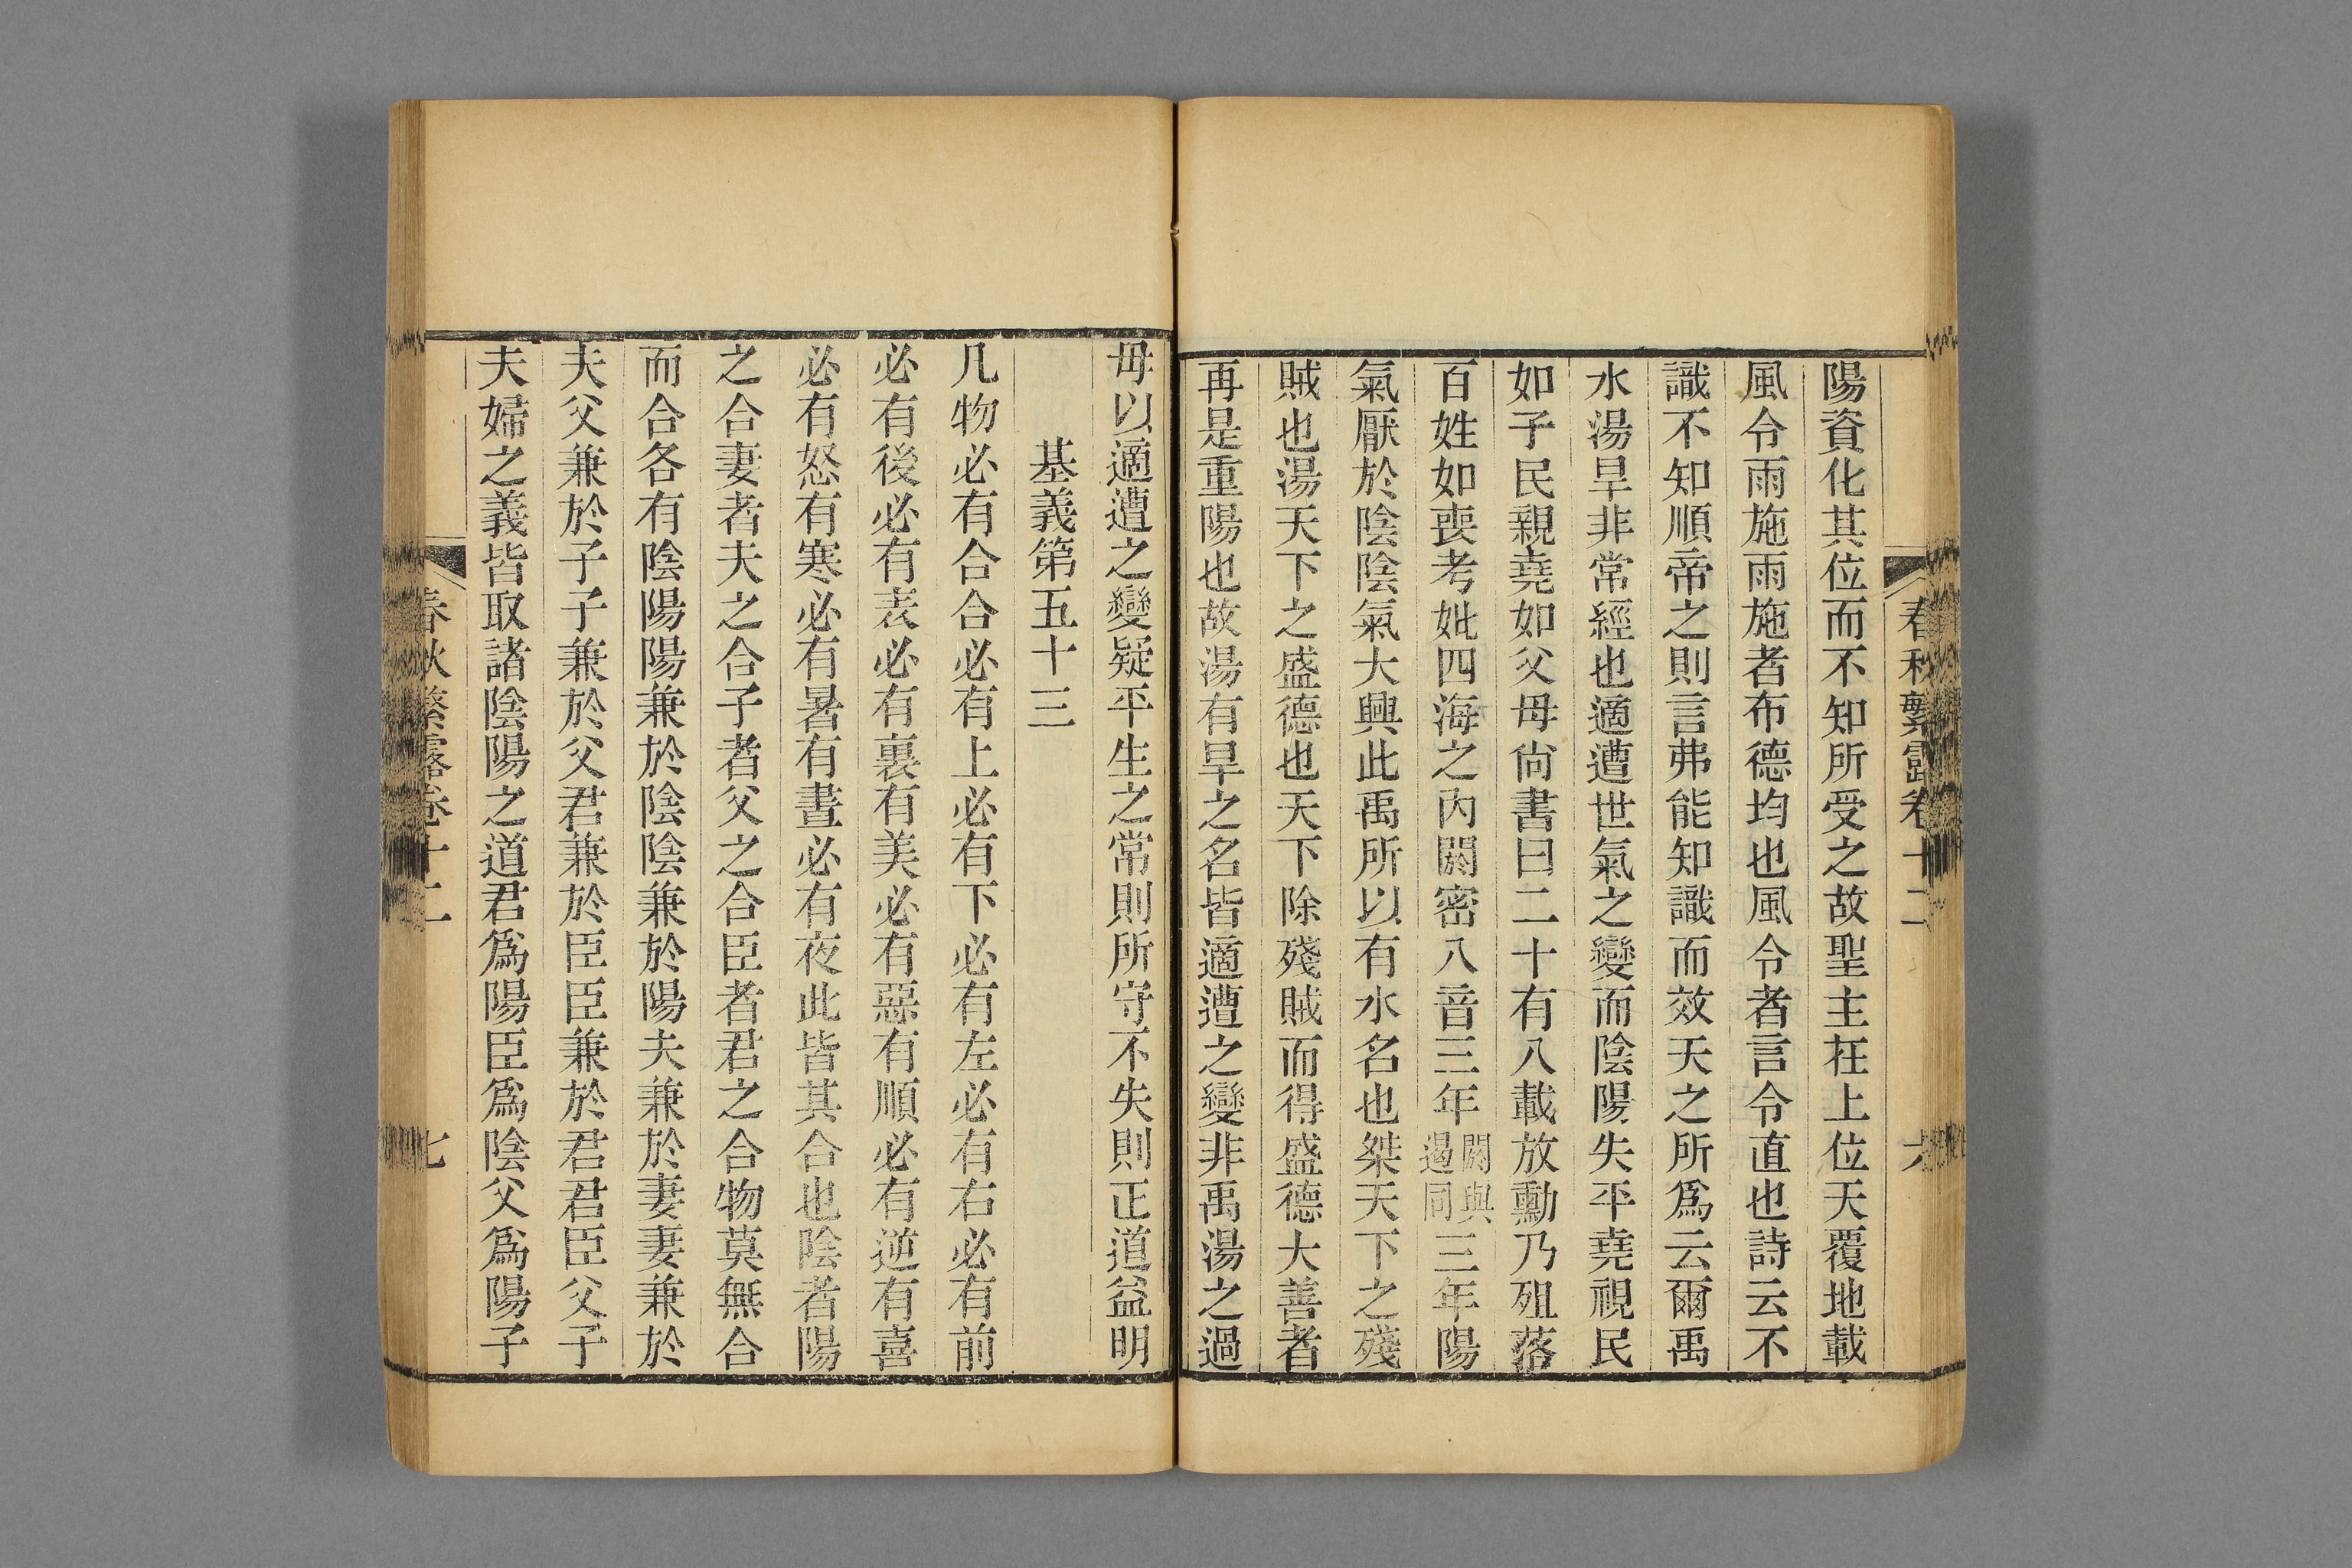 春秋繁露卷十二 六
陽資化其位而不知所受之故聖主在上位天覆地載
風令雨施雨施者布德均也風令者言令直也詩云不
識不知順帝之則言弗能知識而效天之所爲云爾禹
水湯旱非常經也適遭世氣之變而陰陽失平堯視民
如子民親堯如父母尙書曰二十有八載放勳乃殂落
百姓如喪考妣四海之內閼密八音三年閼與遏同三年陽
氣厭於陰陰氣大興此禹所以有水名也桀天下之殘
賊也湯天下之盛德也天下除殘賊而得盛德大善者
再是重陽也故湯有旱之名皆適遭之變非禹湯之過
毋以適遭之變疑平生之常則所守不失則正道益明
基義第五十三
凡物必有合合必有上必有下必有左必有右必有前
必有後必有表必有裏有美必有惡有順必有逆有喜
必有怒有寒必有暑有晝必有夜此皆其合也陰者陽
之合妻者夫之合子者父之合臣者君之合物莫無合
而合各有陰陽陽兼於陰陰兼於陽夫兼於妻妻兼於
夫父兼於子子兼於父君兼於臣臣兼於君君臣父子
夫婦之義皆取諸陰陽之道君爲陽臣爲陰父爲陽子
春秋繁露卷十二 七